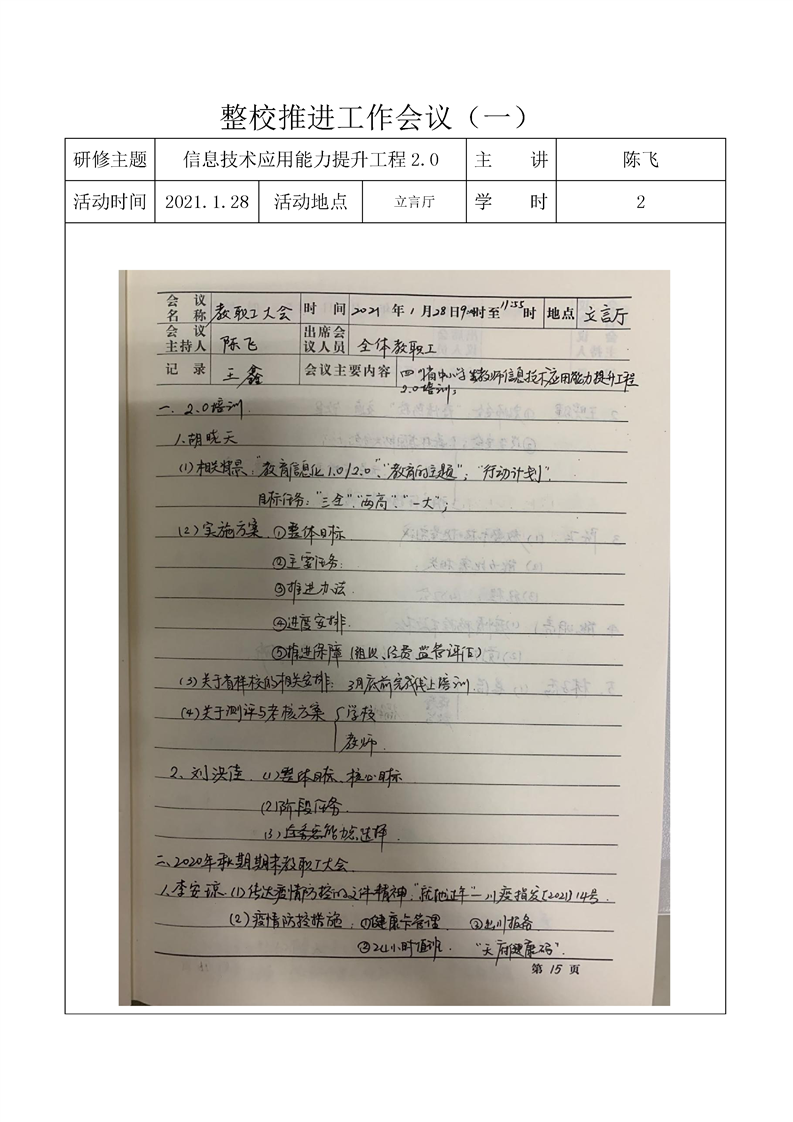 整校推进工作会议（一）
研修主题 信息技术应用能力提升工程2.0 主 讲 陈飞
活动时间 2021.1.28 活动地点 立言厅 学 时 2
会议名称 教职工大会 时间 2021年1月28日9:00时至11:55时 地点 立言厅
会议主持人 陈飞 出席会议人员 全体教职工
记录 王鑫 会议主要内容 四川省中小学教师信息技术应用能力提升工程
2.0培训;
一、2.0培训.
1.胡晓天
(1)相关背景:"教育信息化1.0/2.0"、"教育的主题"; "行动计划".
目标任务:"三全"."两高"."一大";
(2)实施方案 ①整体目标
②主要任务:
③推进办法.
④进度安排.
⑤推进保障(组织、经费 监管评估)
(3)关于有样校的相关安排: 3月底前完成线上培训.
(4)关于测评与考核方案 {学校
教师.
2、刘洪佳. (1)整体目标、核心目标
(2)阶段任务.
(3)能力点选择.
二、2020年秋期期末教职工大会
1.李安琼 (1)传达疫情防控的文件精神."就地过年"—川疫指发[2021]14号.
(2)疫情防控措施: ①健康卡管理. ②出川报备
③24小时值班. "天府健康码".
第 15 页